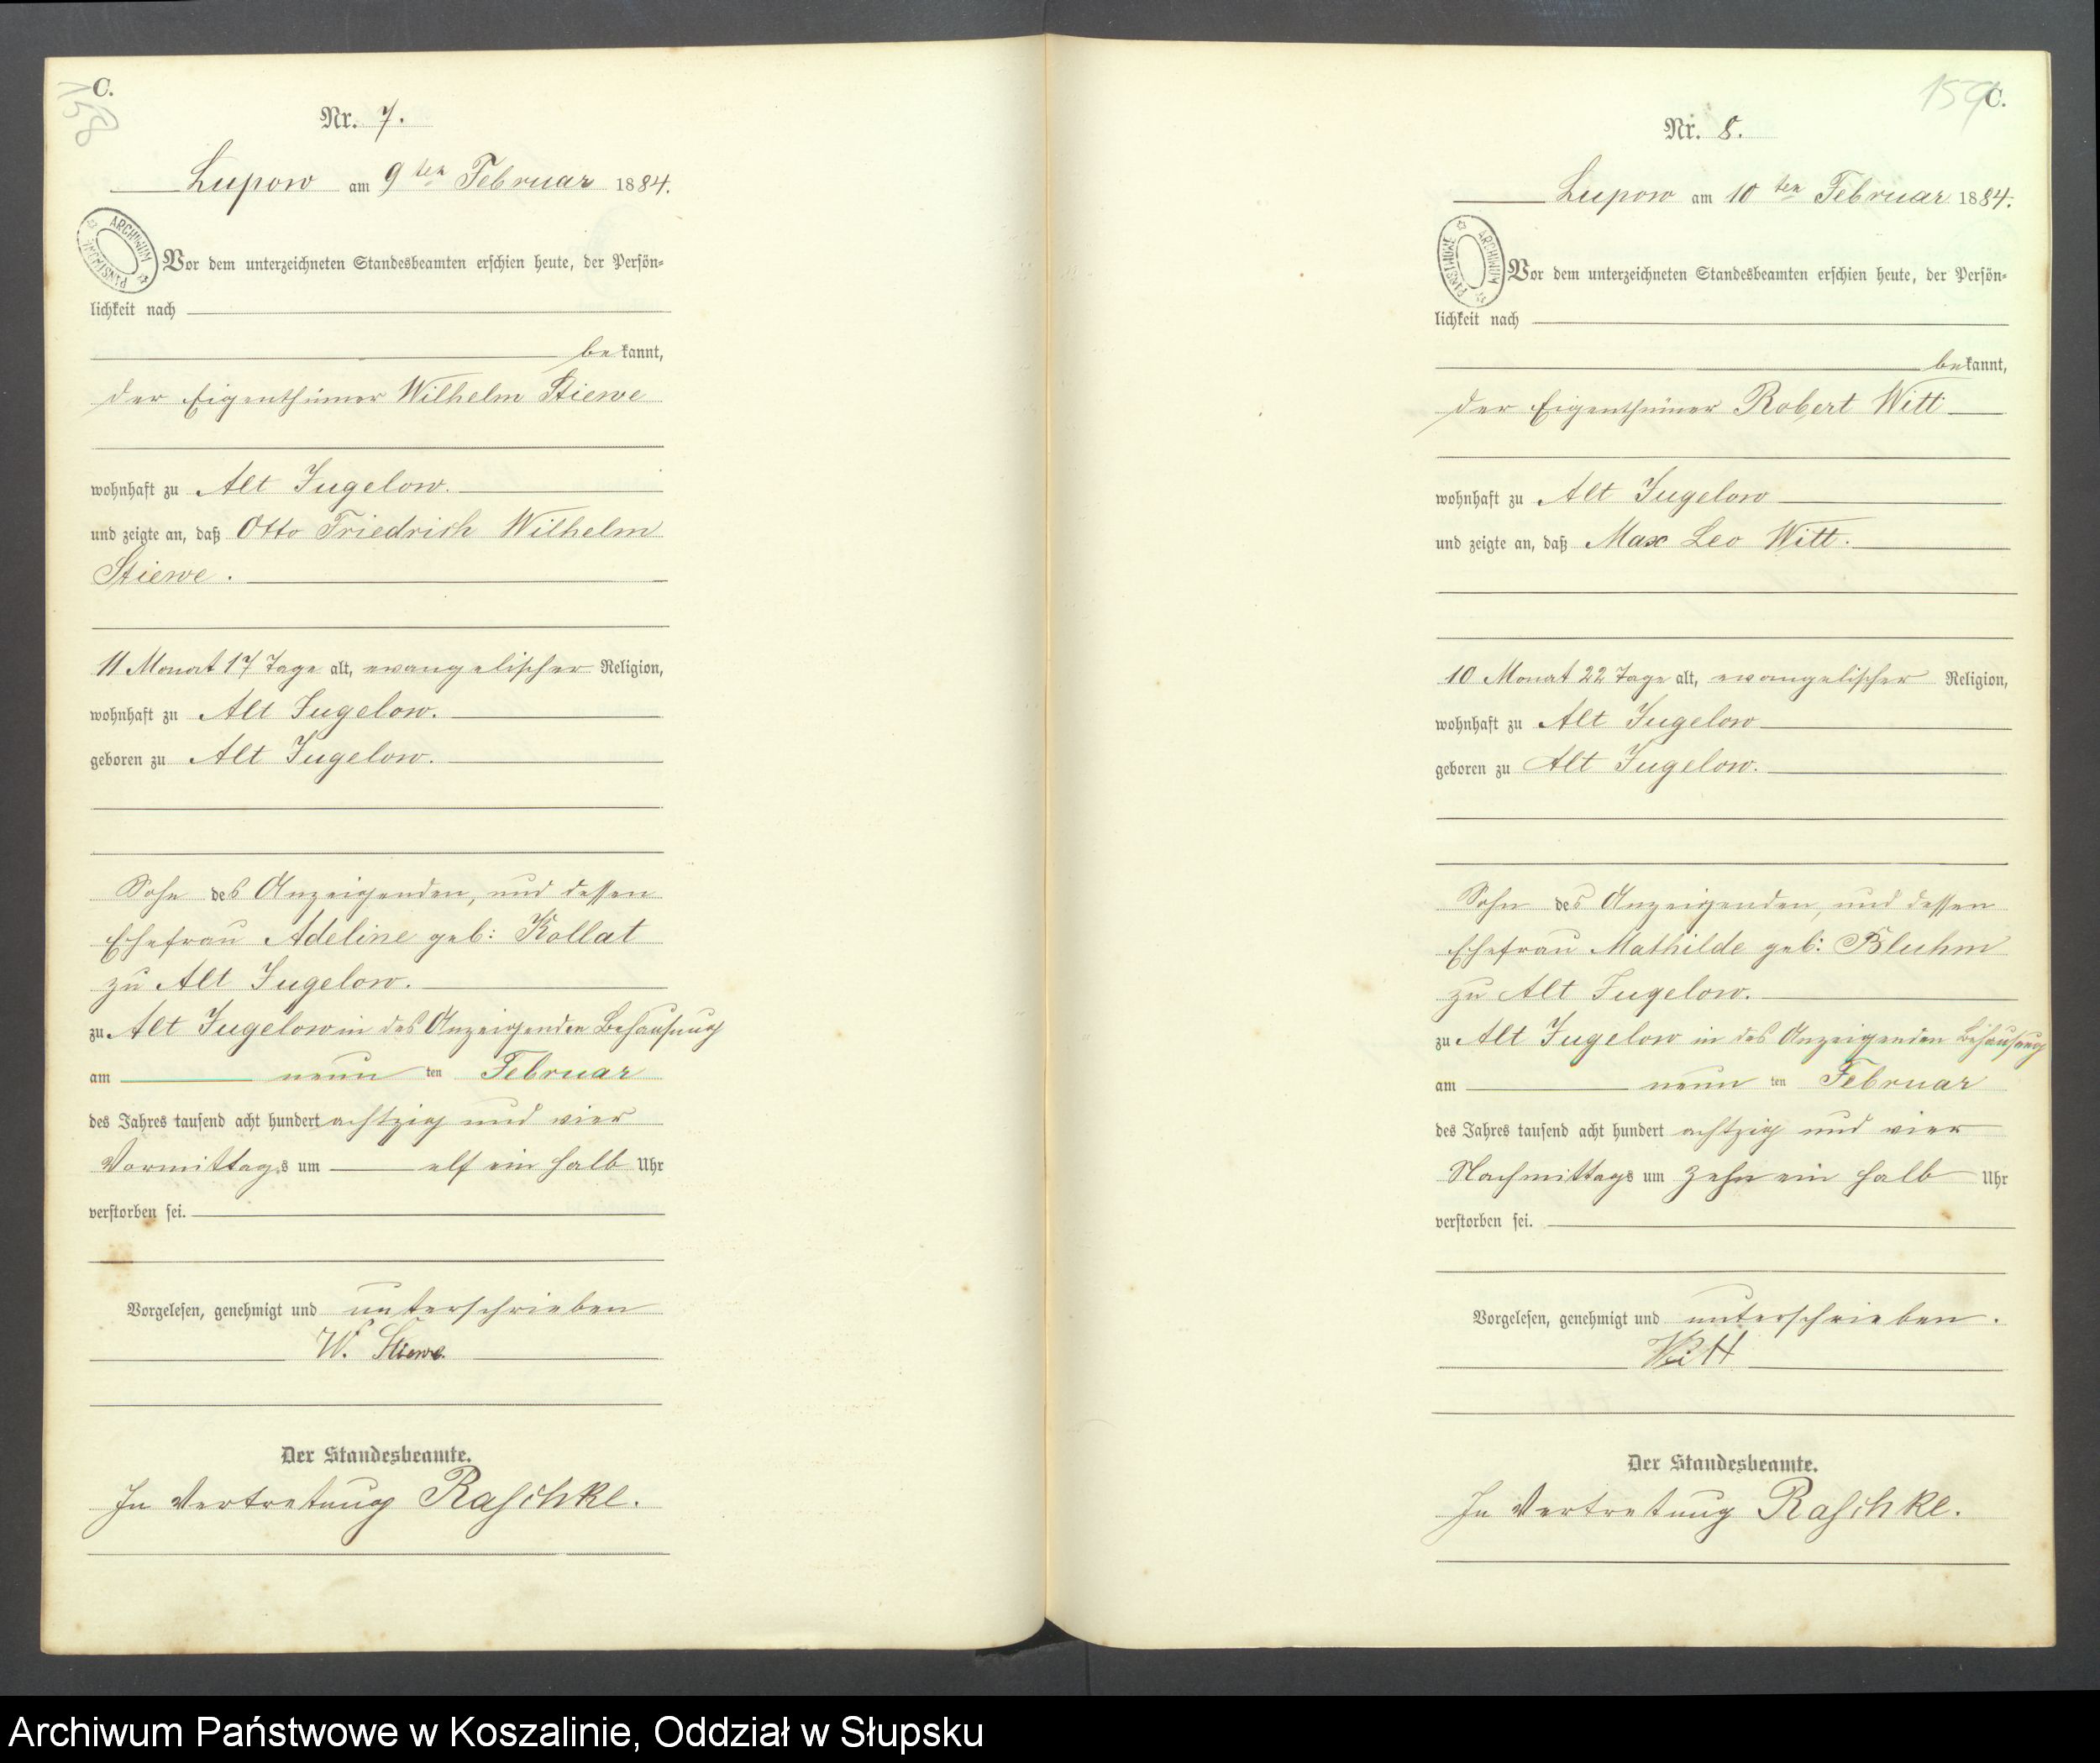 C.
158
Nr. 7.
Lupow am 9ten Februar 1884.
ARCHIWUM PAŃSTWOWE
Vor dem unterzeichneten Standesbeamten erschien heute, der Persön-
lichkeit nach
bekannt,
der Eigenthümer Wilhelm Stiewe
wohnhaft zu Alt Jugelow.
und zeigte an, daß Otto Friedrich Wilhelm
Stiewe.
11 Monat 17 Tage alt, evangelischer Religion,
wohnhaft zu Alt Jugelow.
geboren zu Alt Jugelow.
Sohn des Anzeigenden, und dessen
Ehefrau Adeline geb: Kollat
zu Alt Jugelow.
zu Alt Jugelow in des Anzeigenden Behausung
am neun ten Februar
des Jahres tausend acht hundert achtzig und vier
Vormittags um elf ein halb Uhr
verstorben sei.
Vorgelesen, genehmigt und unterschrieben
W. Stiewe.
Der Standesbeamte.
In Vertretung Raschke.
159
C.
Nr. 8.
Lupow am 10ten Februar 1884.
ARCHIWUM PAŃSTWOWE
Vor dem unterzeichneten Standesbeamten erschien heute, der Persön-
lichkeit nach
bekannt,
der Eigenthümer Robert Witt
wohnhaft zu Alt Jugelow
und zeigte an, daß Max Leo Witt.
10 Monat 22 Tage alt, evangelischer Religion,
wohnhaft zu Alt Jugelow
geboren zu Alt Jugelow.
Sohn des Anzeigenden, und dessen
Ehefrau Mathilde geb: Bluhm
zu Alt Jugelow.
zu Alt Jugelow in des Anzeigenden Behausung
am neun ten Februar
des Jahres tausend acht hundert achtzig und vier
Nachmittags um zehn ein halb Uhr
verstorben sei.
Vorgelesen, genehmigt und unterschrieben.
Witt
Der Standesbeamte.
In Vertretung Raschke.
Archiwum Państwowe w Koszalinie, Oddział w Słupsku